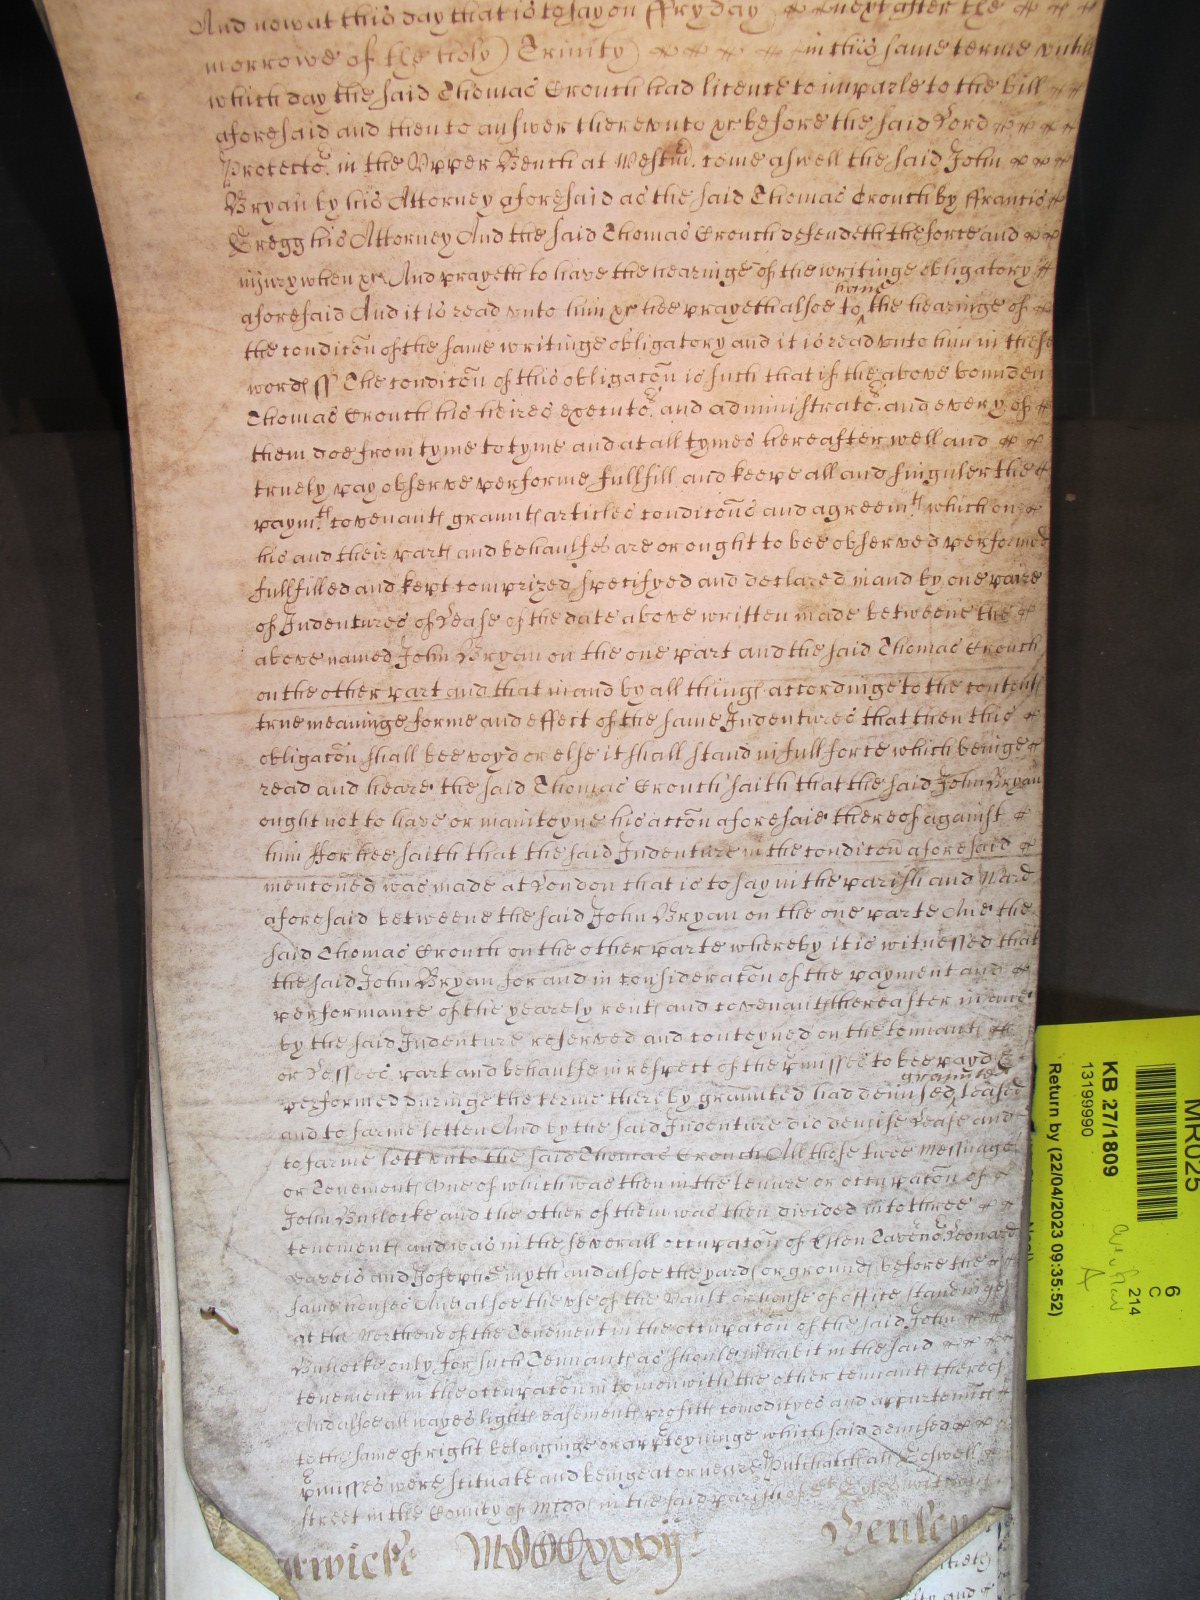 And now at this day that is to say on ffryday next after the
morrowe of the holy Trinity in this same terme untill
which day the said Thomas Crouch had licence to imparle to the bill
aforesaid and then to answer thereunto &c before the said Lord
Protector. in the Upper Bench at Westm. come aswell the said John
Bryan by his Attorney aforesaid as the said Thomas Crouch by ffrancis
Gregg his Attorney And the said Thomas Crouch defendeth the force and
injury when &c And prayeth to have the hearinge of the writinge obligatory
aforesaid And it is read unto him &c hee prayeth alsoe to have the hearinge of
the condicōn of the same writinge obligatory and it is read unto him in these
words ss The condicōn of this obligacōn is such that if the above bounden
Thomas Crouch his heires executors. and administrators. and every of
them doe from tyme to tyme and at all tymes hereafter well and
truely pay observe performe fullfill and keepe all and singuler the
paymts. covenants graunts articles condicōns and agreemts. which on
his and their parts and behaulfes are or ought to bee observed performed
fullfilled and kept comprized specifyed and declared in and by one paire
of Indentures of Lease of the date above written made betweene the
above named John Bryan on the one part and the said Thomas Crouch
on the other part and that in and by all things accordinge to the contents
true meaninge forme and effect of the same Indentures that then this
obligacōn shall bee voyd or else it shall stand in full force which beinge
read and heard the said Thomas Crouch saith that the said John Bryan
ought not to have or mainteyne his accōn aforesaid thereof against
him ffor hee saith that the said Indenture in the condicōn aforesaid
mencōned was made at London that is to say in the parish and Ward
aforesaid betweene the said John Bryan on the one parte And the
said Thomas Crouch on the other parte whereby it is witnessed that
the said John Bryan for and in consideracōn of the payment and
performance of the yearely rents and covenants thereafter in and
by the said Indenture reserved and conteyned on the tennants
or Lessees part and behaulfe in respect of the pmisses to bee payd &
performed duringe the terme thereby graunted had demised graunted leased
and to farme letten And by the said Indenture did demise Lease and
to farme lett unto the said Thomas Crouch All those twoe Messuages
or Tenements One of which was then in the tenure or occupacōn of
John Bullocke and the other of them was then divided into three
tenements and was in the severall occupacōn of Ellen Leonard
and Joseph Smyth and alsoe the yards or grounds before the
same houses And alsoe the use of the Vault or house of office standinge
at the North end of the Tenement in the occupacōn of the said John
Bullocke only for such Tennants as should inhabit in the said
tenement in the occupacōn in comon with the other tennants thereof
And alsoe all wayes lights easements profitts comodityes and appurtenncs
to the same of right belonginge or apperteyninge which said demised
pmisses were scituate and beinge at or neare als
street in the County of Midds in the said parish of St Gyles without
MDCLxxvij
MR025
6
C
214
KB 27/1809
13199990
Return by (22/04/2023 09:35:52)